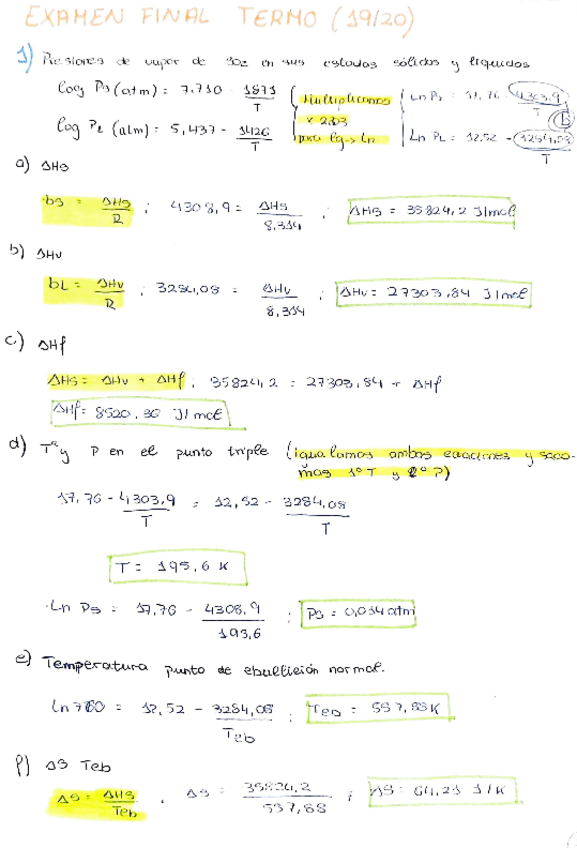 EXAMEN FINAL TERMO (19/20)
1) Presiones de vapor de SO2 en sus estados sólidos y líquidos
log Ps (atm) = 7,710 - 1871/T
log PL (atm) = 5,437 - 1426/T
Multiplicamos x 2,303 para lg -> Ln
Ln Ps = 17,76 - 4303,9/T
Ln PL = 12,52 - 3284,08/T
B
a) ΔHs
bs = ΔHs/R ; 4308,9 = ΔHs/8,314 ; ΔHs = 35824,2 J/mol
b) ΔHv
bL = ΔHv/R ; 3284,08 = ΔHv/8,314 ; ΔHv = 27303,84 J/mol
c) ΔHf
ΔHs = ΔHv + ΔHf ; 35824,2 = 27303,84 + ΔHf
ΔHf = 8520,36 J/mol
d) Tª y P en el punto triple (igualamos ambas ecuaciones y saca-
mos 1º T y 2º P)
17,76 - 4303,9/T = 12,52 - 3284,08/T
T = 195,6 K
Ln Ps = 17,76 - 4308,9/193,6 ; Ps = 0,014 atm
e) Temperatura punto de ebullición normal.
Ln 760 = 12,52 - 3284,08/Teb ; Teb = 557,88 K
f) ΔS Teb
ΔS = ΔHs/Teb , ΔS = 35824,2/557,88 ; ΔS = 64,21 J/K